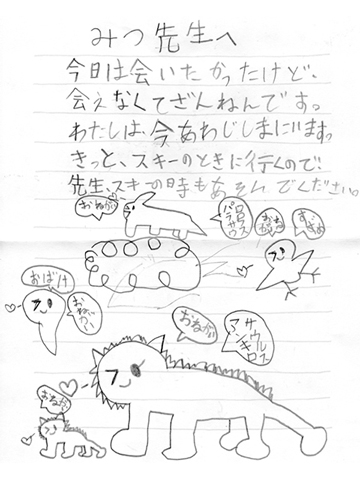 みつ先生へ
今日は会いたかったけど、
会えなくてざんねんです。
わたしは、今あわじしまにいます。
きっと、スキーのときに行くので、
先生、スキーの時もあそんでくださいo
おねがい
おばけ
おねがい
おねがい
アンキロサウルス
おねがい